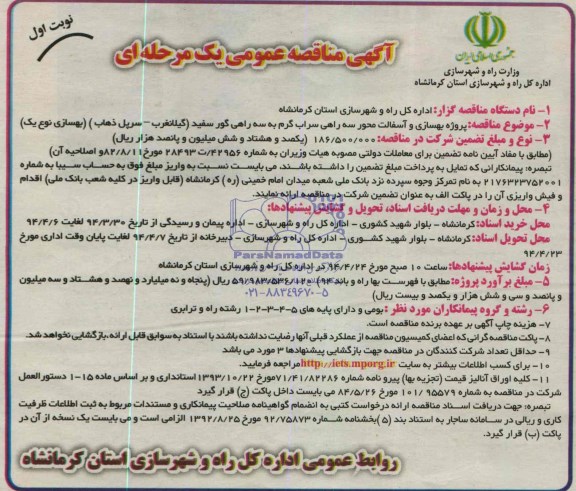 نوبت اول
جمهوری اسلامی ایران
وزارت راه و شهرسازی
اداره کل راه و شهرسازی استان کرمانشاه
آگهی مناقصه عمومی یک مرحله ای
۱- نام دستگاه مناقصه گزار: اداره کل راه و شهرسازی استان کرمانشاه
۲- موضوع مناقصه: پروژه بهسازی و آسفالت محور سه راهی سراب گرم به سه راهی گور سفید (گیلانغرب – سرپل ذهاب ) (بهسازی نوع یک)
۳- نوع و مبلغ تضمین شرکت در مناقصه: ۱۸۶/۵۰۰/۰۰۰ (یکصد و هشتاد و شش میلیون و پانصد هزار ریال)
(مطابق با مفاد آیین نامه تضمین برای معاملات دولتی مصوبه هیات وزیران به شماره ۴۲۹۵۶/ت ۲۸۴۹۳ مورخ ۸۲/۸/۱۱و اصلاحیه آن)
تبصره: پیمانکارانی که تمایل به پرداخت مبلغ تضمین را داشته باشند، می بایست نسبت به واریز مبلغ فوق به حساب سیبا به شماره
۲۱۷۶۳۲۳۷۵۲۰۰۱ به نام تمرکز وجوه سپرده نزد بانک ملی شعبه میدان امام خمینی (ره ) کرمانشاه (قابل واریز در کلیه شعب بانک ملی) اقدام
و فیش واریزی آن را در پاکت الف به عنوان تضمین شرکت در مناقصه ارائه نمایند.
۴- محل و زمان و مهلت دریافت اسناد، تحویل و گشایش پیشنهادها:
محل خرید اسناد: کرمانشاه - بلوار شهید کشوری - اداره کل راه و شهرسازی - اداره پیمان و رسیدگی از تاریخ ۹۴/۳/۳۰ لغایت ۹۴/۴/۶
محل تحویل اسناد: کرمانشاه - بلوار شهید کشوری - اداره کل راه و شهرسازی - دبیرخانه از تاریخ ۹۴/۴/۷ لغایت پایان وقت اداری مورخ
۹۴/۴/۲۳
زمان گشایش پیشنهادها: ساعت ۱۰ صبح مورخ ۹۴/۴/۲۴ در اداره کل راه و شهرسازی استان کرمانشاه
۵- مبلغ برآورد پروژه: مطابق با فهرست بها راه و باند ۹۴) ۵۹/۹۸۳/۵۳۶/۱۲۰ ریال (پنجاه و نه میلیارد و نهصد و هشتاد و سه میلیون
و پانصد و سی و شش هزار و یکصد و بیست ریال)
۶- رشته و گروه پیمانکاران مورد نظر : بومی و دارای پایه های ۵-۴-۳-۲-۱ رشته راه و ترابری
۷- هزینه چاپ آگهی بر عهده برنده مناقصه است.
۸- پاکت مناقصه گرانی که اعضای کمیسیون مناقصه از عملکرد قبلی آنها رضایت نداشته باشند با استناد به سوابق قابل ارائه، بازگشایی نخواهد شد.
۹- حداقل تعداد شرکت کنندگان در مناقصه جهت بازگشایی پیشنهادها ۳ مورد می باشد
۱۰- برای کسب اطلاعات بیشتر به سایت http://iets.mporg.ir مراجعه فرمایید.
۱۱- کلیه اوراق آنالیز قیمت (تجزیه بها) پیرو نامه شماره ۷۱/۴۱/۸۲۲۸۶مورخ ۱۳۹۳/۱۰/۲۲استانداری و بر اساس ماده ۱۵-۱ دستورالعمل
شرکت در مناقصه به شماره ۱۰۱/ ۹۵۵۷۹ مورخ ۸۴/۵/۲۶ می بایست داخل پاکت (ج) قرار گیرد
تبصره: جهت دریافت اسناد مناقصه ارائه درخواست کتبی به انضمام گواهینامه صلاحیت پیمانکاری و مستندات مربوط به ثبت اطلاعات ظرفیت
کاری و ریالی در سامانه ساجار به استناد بند (۵ )بخشنامه شماره ۹۲/۷۵۸۷۳ مورخ ۱۳۹۲/۸/۲۵ الزامی است و می بایست یک نسخه از آن در
پاکت (ب) قرار گیرد.
روابط عمومی اداره کل راه و شهرسازی استان کرمانشاه
ParsNamadData
۰۲۱-۸۸۳۴۹۶۷۰-۵